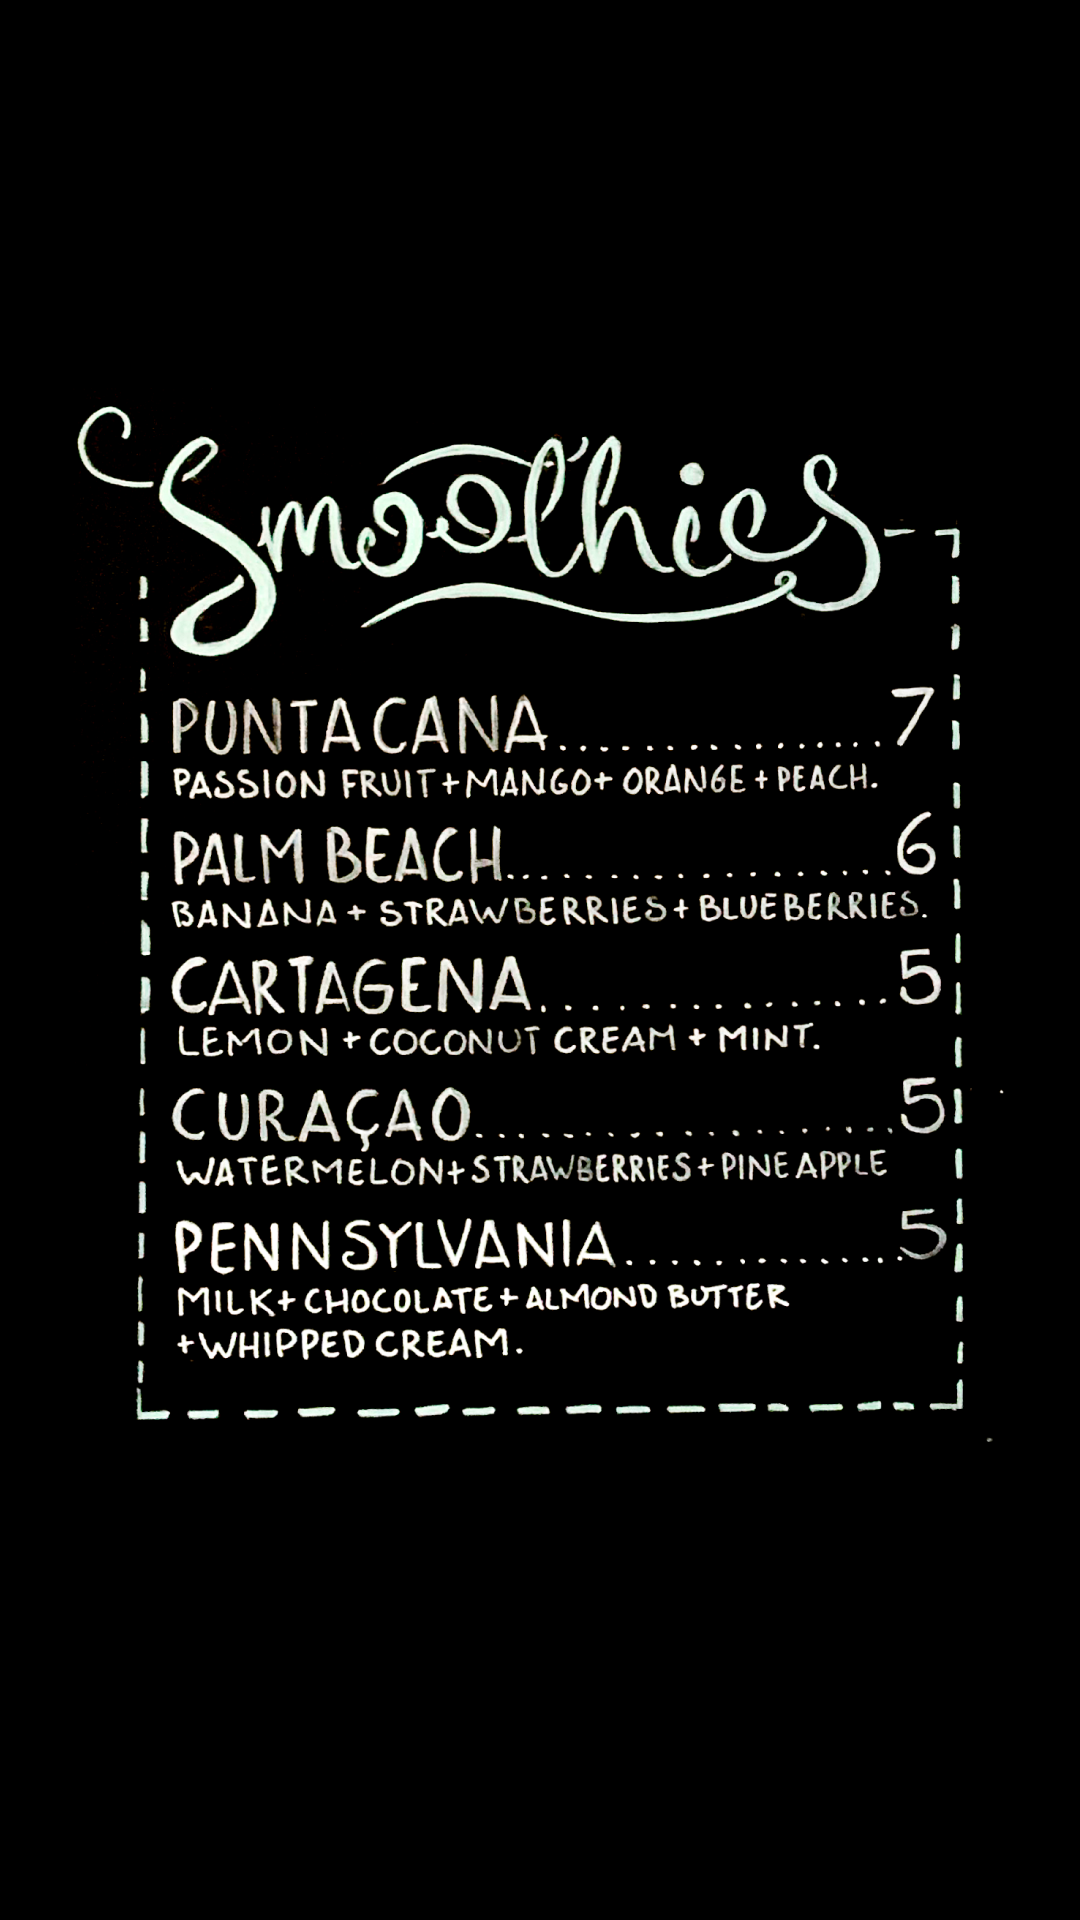 Smoothies
PUNTA CANA................7
PASSION FRUIT + MANGO + ORANGE + PEACH.
PALM BEACH..................6
BANANA + STRAWBERRIES + BLUEBERRIES.
CARTAGENA...............5
LEMON + COCONUT CREAM + MINT.
CURAÇAO...................5
WATERMELON + STRAWBERRIES + PINEAPPLE
PENNSYLVANIA.............5
MILK + CHOCOLATE + ALMOND BUTTER
+ WHIPPED CREAM.